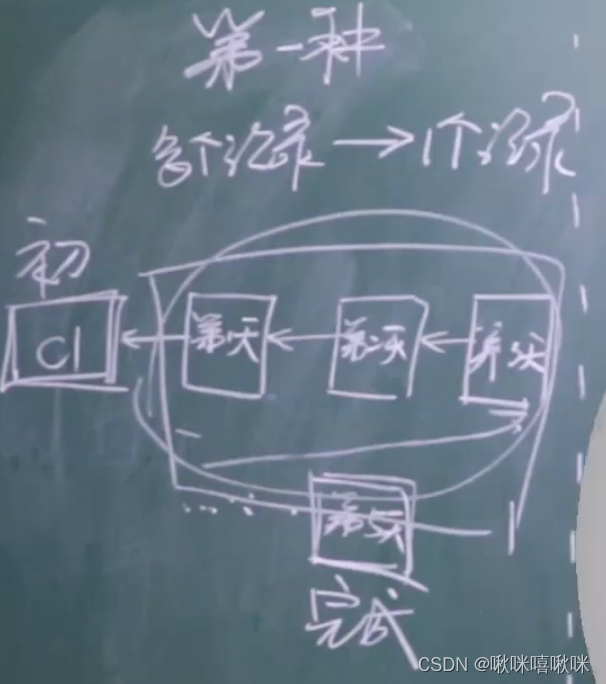 第一种
多个记录→1个记录
初
C1 第1天 第二天 第3天
第5天
完成
CSDN @啾咪嘻啾咪